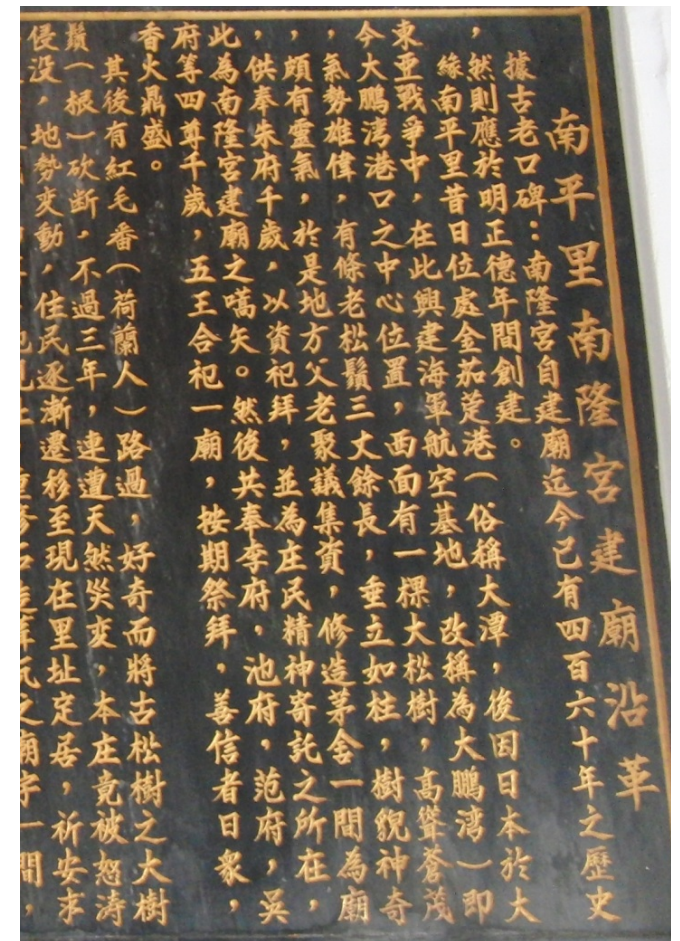 南平里南隆宮建廟沿革
據古老口碑：南隆宮自建廟迄今已有四百六十年之歷史
，然則應於明正德年間創建。
緣南平里昔日位處金茄萣港（俗稱大潭，後因日本於大
東亞戰爭中，在此興建海軍航空基地，改稱為大鵬灣）即
今大鵬灣港口之中心位置，西面有一棵大松樹，高聳蒼茂
，氣勢雄偉，有條老松鬚三丈餘長，垂立如柱，樹貌神奇
，頗有靈氣，於是地方父老聚議集資，修造茅舍一間為廟
，供奉朱府千歲，以資祀拜，並為庄民精神寄託之所在，
此為南隆宮建廟之嚆矢。然後共奉李府，池府，范府，吳
府等四尊千歲，五王合祀一廟，按期祭拜，善信者日衆，
香火鼎盛。
其後有紅毛番（荷蘭人）路過，好奇而將古松樹之大樹
鬚（根）砍断，不過三年，連遭天然災変，本庄竟被怒涛
侵没，地勢変動，住民逐漸遷移至現在里址定居，祈安求